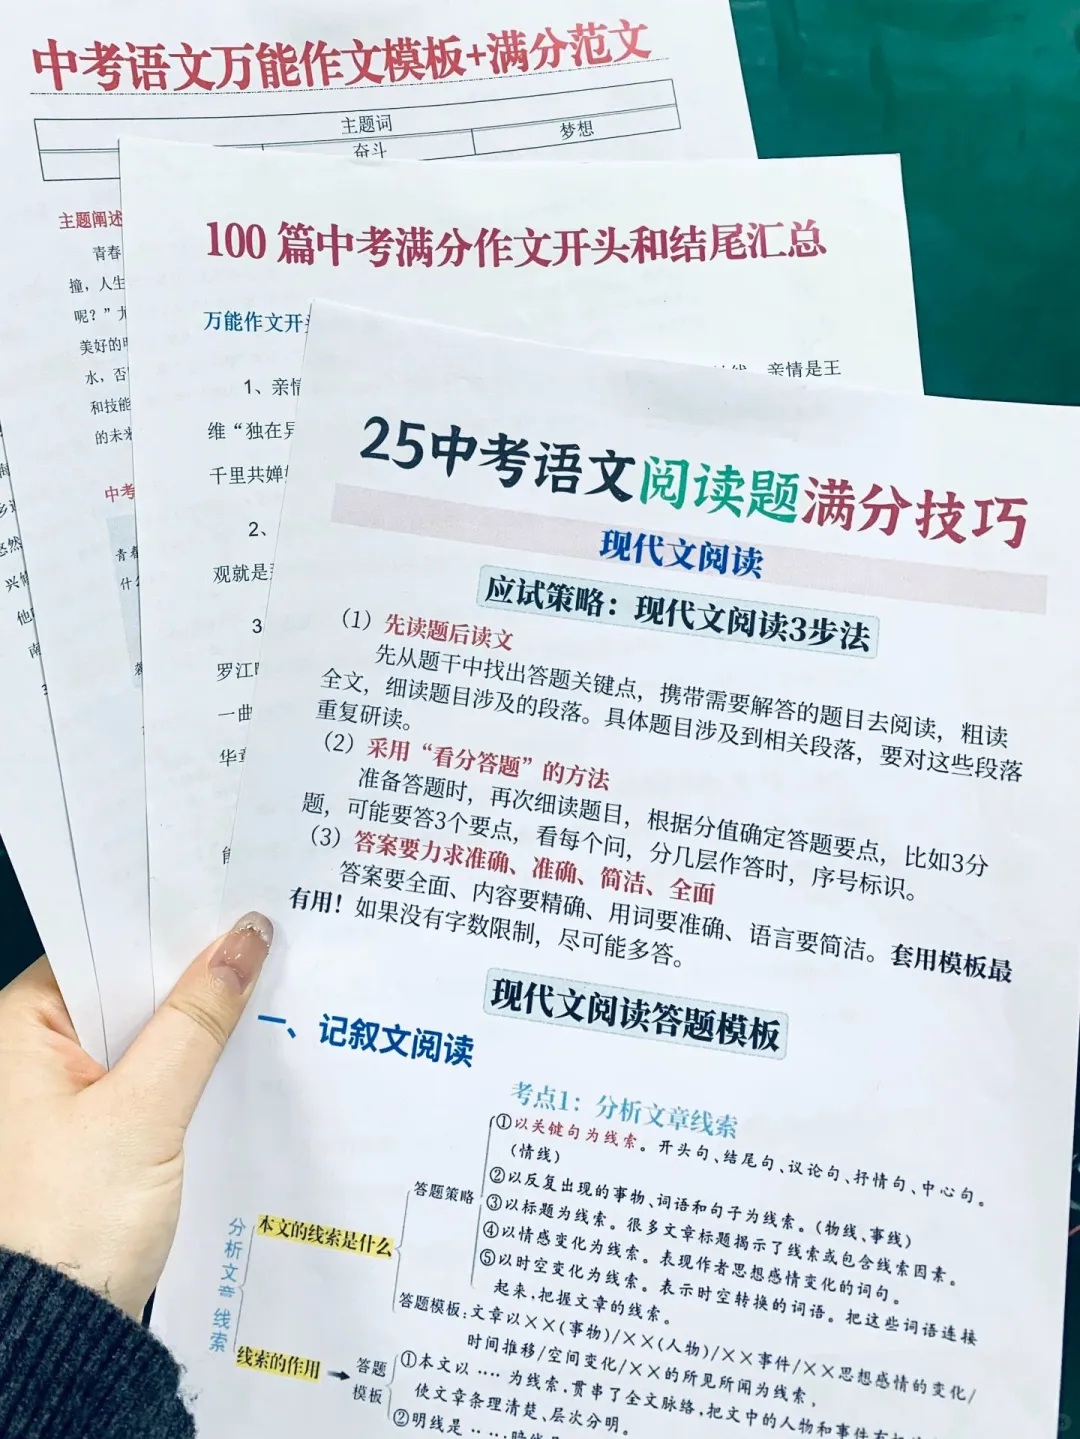 中考语文万能作文模板+满分范文
主题词
奋斗
梦想
主题阐述
青春
撞，人生
呢？”
美好的
水，否
和技能
的未来
中考
青春
什
100篇中考满分作文开头和结尾汇总
万能作文开
亲情是王
1、亲情
维“独在异
千里共婵
2、
观就是
3
罗江
一曲
华
25中考语文阅读题满分技巧
现代文阅读
应试策略：现代文阅读3步法
（1）先读题后读文
先从题干中找出答题关键点，携带需要解答的题目去阅读，粗读
全文，细读题目涉及的段落。具体题目涉及到相关段落，要对这些段落
重复研读。
（2）采用“看分答题”的方法
准备答题时，再次细读题目，根据分值确定答题要点，比如3分
题，可能要答3个要点，看每个问，分几层作答时，序号标识。
（3）答案要力求准确、准确、简洁、全面
答案要全面、内容要精确、用词要准确、语言要简洁。套用模板最
有用！如果没有字数限制，尽可能多答。
现代文阅读答题模板
一、记叙文阅读
考点1：分析文章线索
分析文章线索
本文的线索是什么
答题策略
①以关键句为线索。开头句、结尾句、议论句、抒情句、中心句。
(情线)
②以反复出现的事物、词语和句子为线索。(物线、事线)
③以标题为线索。很多文章标题揭示了线索或包含线索因素。
④以情感变化为线索。表现作者思想感情变化的词句。
⑤以时空变化为线索。表示时空转换的词语。把这些词语连接
起来，把握文章的线索。
答题模板：文章以××(事物)/××(人物)/××事件/××思想感情的变化/
时间推移/空间变化/××的所见所闻为线索，
线索的作用
答题
模板
①本文以……为线索，贯串了全文脉络，把文中的人物和事件有
使文章条理清楚、层次分明。
②明线是